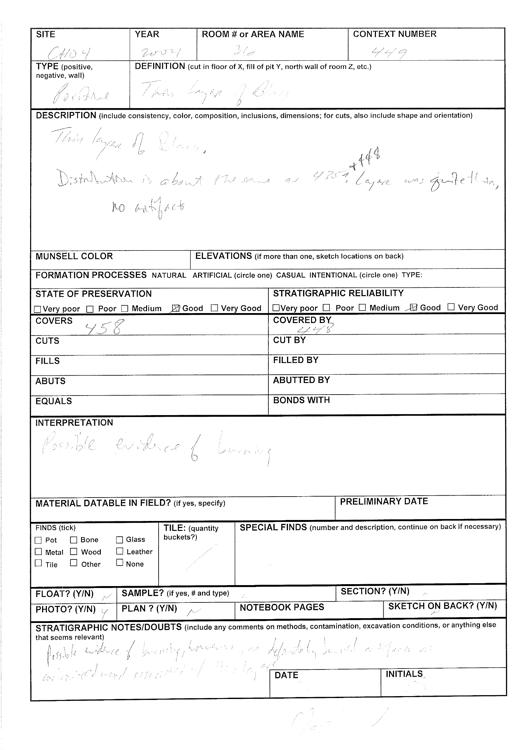 SITE YEAR ROOM # or AREA NAME CONTEXT NUMBER
CHO4 2004 449
TYPE (positive, negative, wall) DEFINITION (cut in floor of X, fill of pit Y, north wall of room Z, etc.)
Positive Thin layer of
DESCRIPTION (include consistency, color, composition, inclusions, dimensions; for cuts, also include shape and orientation)
Thin layer of
+448
Distribution is about the same as layer was quite thin,
no artifacts
MUNSELL COLOR ELEVATIONS (if more than one, sketch locations on back)
FORMATION PROCESSES NATURAL ARTIFICIAL (circle one) CASUAL INTENTIONAL (circle one) TYPE:
STATE OF PRESERVATION STRATIGRAPHIC RELIABILITY
Very poor Poor Medium Good Very Good Very poor Poor Medium Good Very Good
COVERS 458 COVERED BY 448
CUTS CUT BY
FILLS FILLED BY
ABUTS ABUTTED BY
EQUALS BONDS WITH
INTERPRETATION
Possible evidence of burning
MATERIAL DATABLE IN FIELD? (if yes, specify) PRELIMINARY DATE
FINDS (tick) TILE: (quantity buckets?) SPECIAL FINDS (number and description, continue on back if necessary)
Pot Bone Glass
Metal Wood Leather
Tile Other None
FLOAT? (Y/N) N SAMPLE? (if yes, # and type) N SECTION? (Y/N) N
PHOTO? (Y/N) Y PLAN ? (Y/N) N NOTEBOOK PAGES SKETCH ON BACK? (Y/N)
STRATIGRAPHIC NOTES/DOUBTS (include any comments on methods, contamination, excavation conditions, or anything else that seems relevant)
Possible evidence of burning,
DATE INITIALS